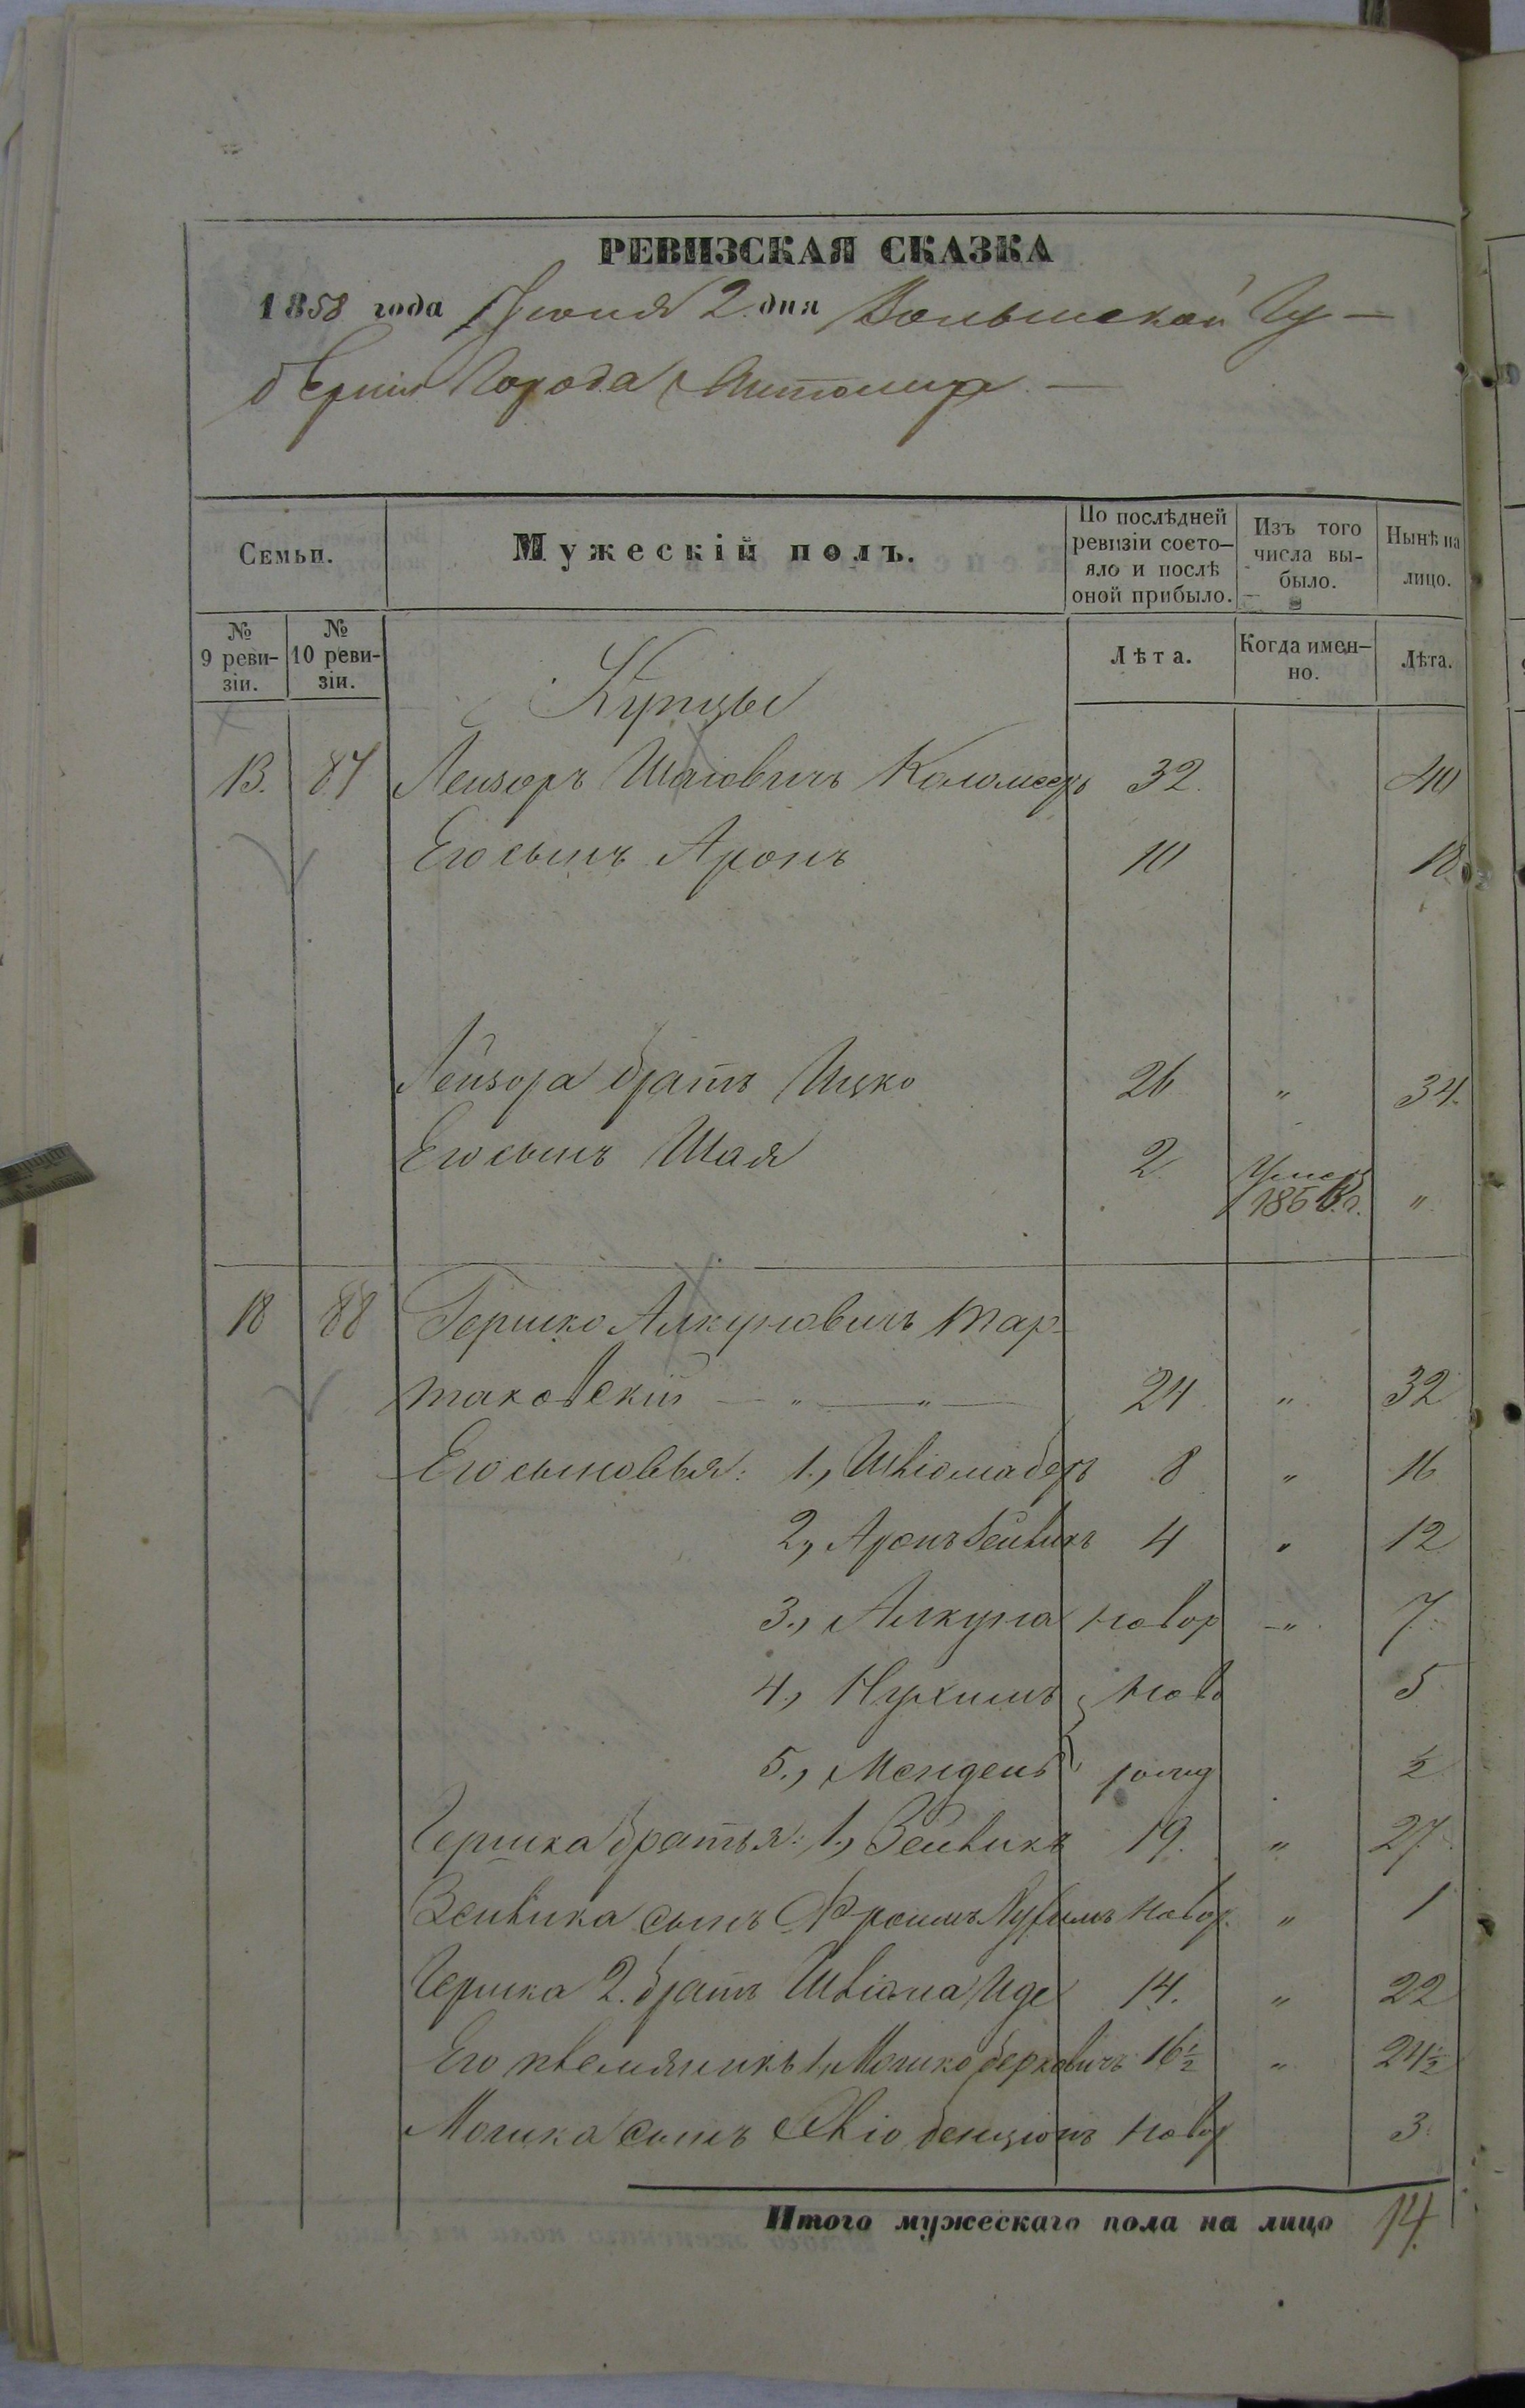 РЕВИЗСКАЯ СКАЗКА
1858 года Іюня 2 дня Волынской Гу-
берніи Города Житомира
Семьи.
Мужескій полъ.
По послѣдней ревизіи состо-яло и послѣ оной прибыло.
Изъ того числа вы-было.
Нынѣ на лицо.
№ 9 реви-зіи.
№ 10 реви-зіи.
Лѣта.
Когда имен-но.
Лѣта.
Купцы
13. 87 Лейзоръ Шаіовичъ 32. 40
Его сынъ Аронъ 10 18
Лейзора братъ Ицко 26 " 34.
Его сынъ Шая 2 Умеръ "
18 88 Гершко Алкуновичъ Тар-
таковскій — " — " — 24 " 32
Его сыновья: 1., Шліомаберъ 8 " 16
2, Аронъ Зейликъ 4 " 12
3., Алкуна новор " 7
4, Нухимъ ново 5
5., Мендель рожд ½
Гершка братья: 1, Зейликъ 19. " 27
Зейлика сынъ Фроимъ новор. " 1
Гершка 2. братъ Шліома Иде 14. " 22
Его племянникъ 1, Мошко Берковичъ 16½ " 24½
Мошка сынъ Бенціонъ новор 3.
Итого мужескаго пола на лицо 14.